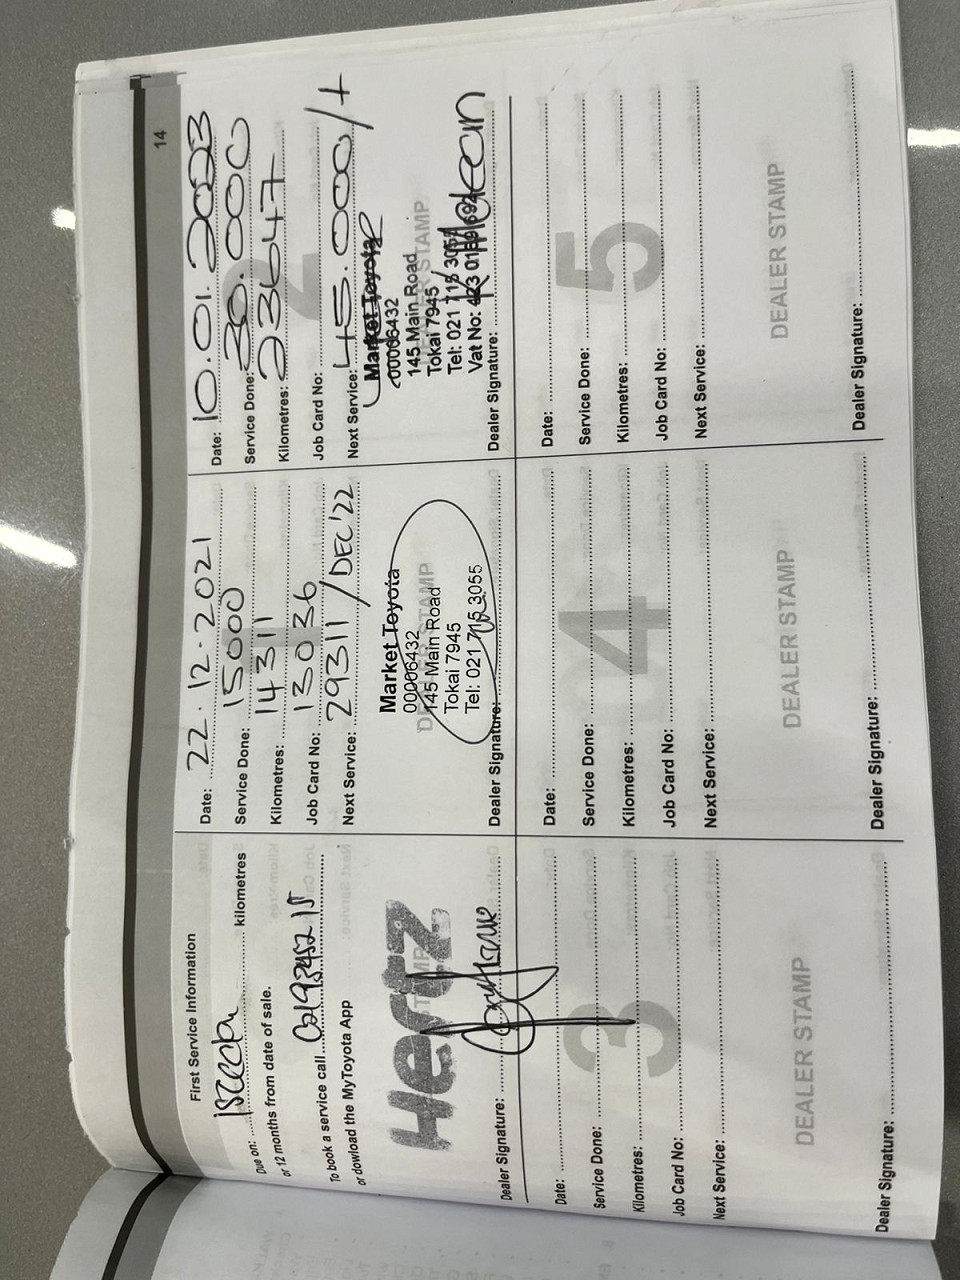 14
First Service Information
Due on: kilometres
or 12 months from date of sale.
To book a service call
or dowload the MyToyota App
Hertz
STAMP
Dealer Signature:
Date: 22.12.2021
Service Done: 15000
Kilometres: 14311
Job Card No: 13036
Next Service: 29311 / DEC '22
Market Toyota
00006432
145 Main Road
Tokai 7945
Tel: 021 715 3055
DEALER STAMP
Dealer Signature:
Date: 10.01.2023
Service Done: 30.000
2
Kilometres: 23647
Job Card No:
Next Service: 45.000/
Market Toyota
00006432
145 Main Road
Tokai 7945
Tel: 021 715 3055
Vat No:
DEALER STAMP
Dealer Signature:
3
Date:
Service Done:
Kilometres:
Job Card No:
Next Service:
DEALER STAMP
Dealer Signature:
4
Date:
Service Done:
Kilometres:
Job Card No:
Next Service:
DEALER STAMP
Dealer Signature:
5
Date:
Service Done:
Kilometres:
Job Card No:
Next Service:
DEALER STAMP
Dealer Signature: